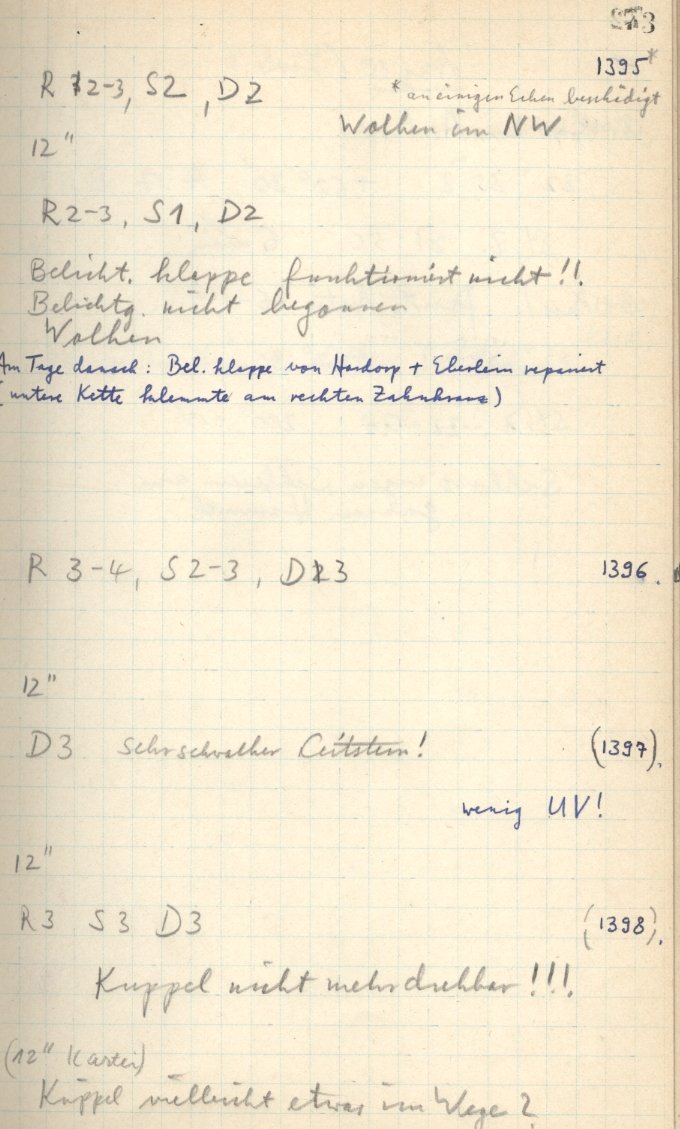 1395*
R 2-3, S2, D2
* an einigen Ecken beschädigt
Wolken im NW
12"
R2-3, S1, D2
Belicht. klappe funktioniert nicht!!
Belichtg. nicht begonnen
Wolken
Am Tage danach: Bel. klappe von Hardorp + Eberlein repariert
(untere Kette klemmte am rechten Zahnkranz)
R 3-4, S 2-3, D 3 1396.
12"
D3 sehr schwacher Leitstern! (1397).
wenig UV!
12"
R3 S3 D3 (1398).
Kuppel nicht mehr drehbar!!!
(12" Kartei)
Kuppel vielleicht etwas im Wege?